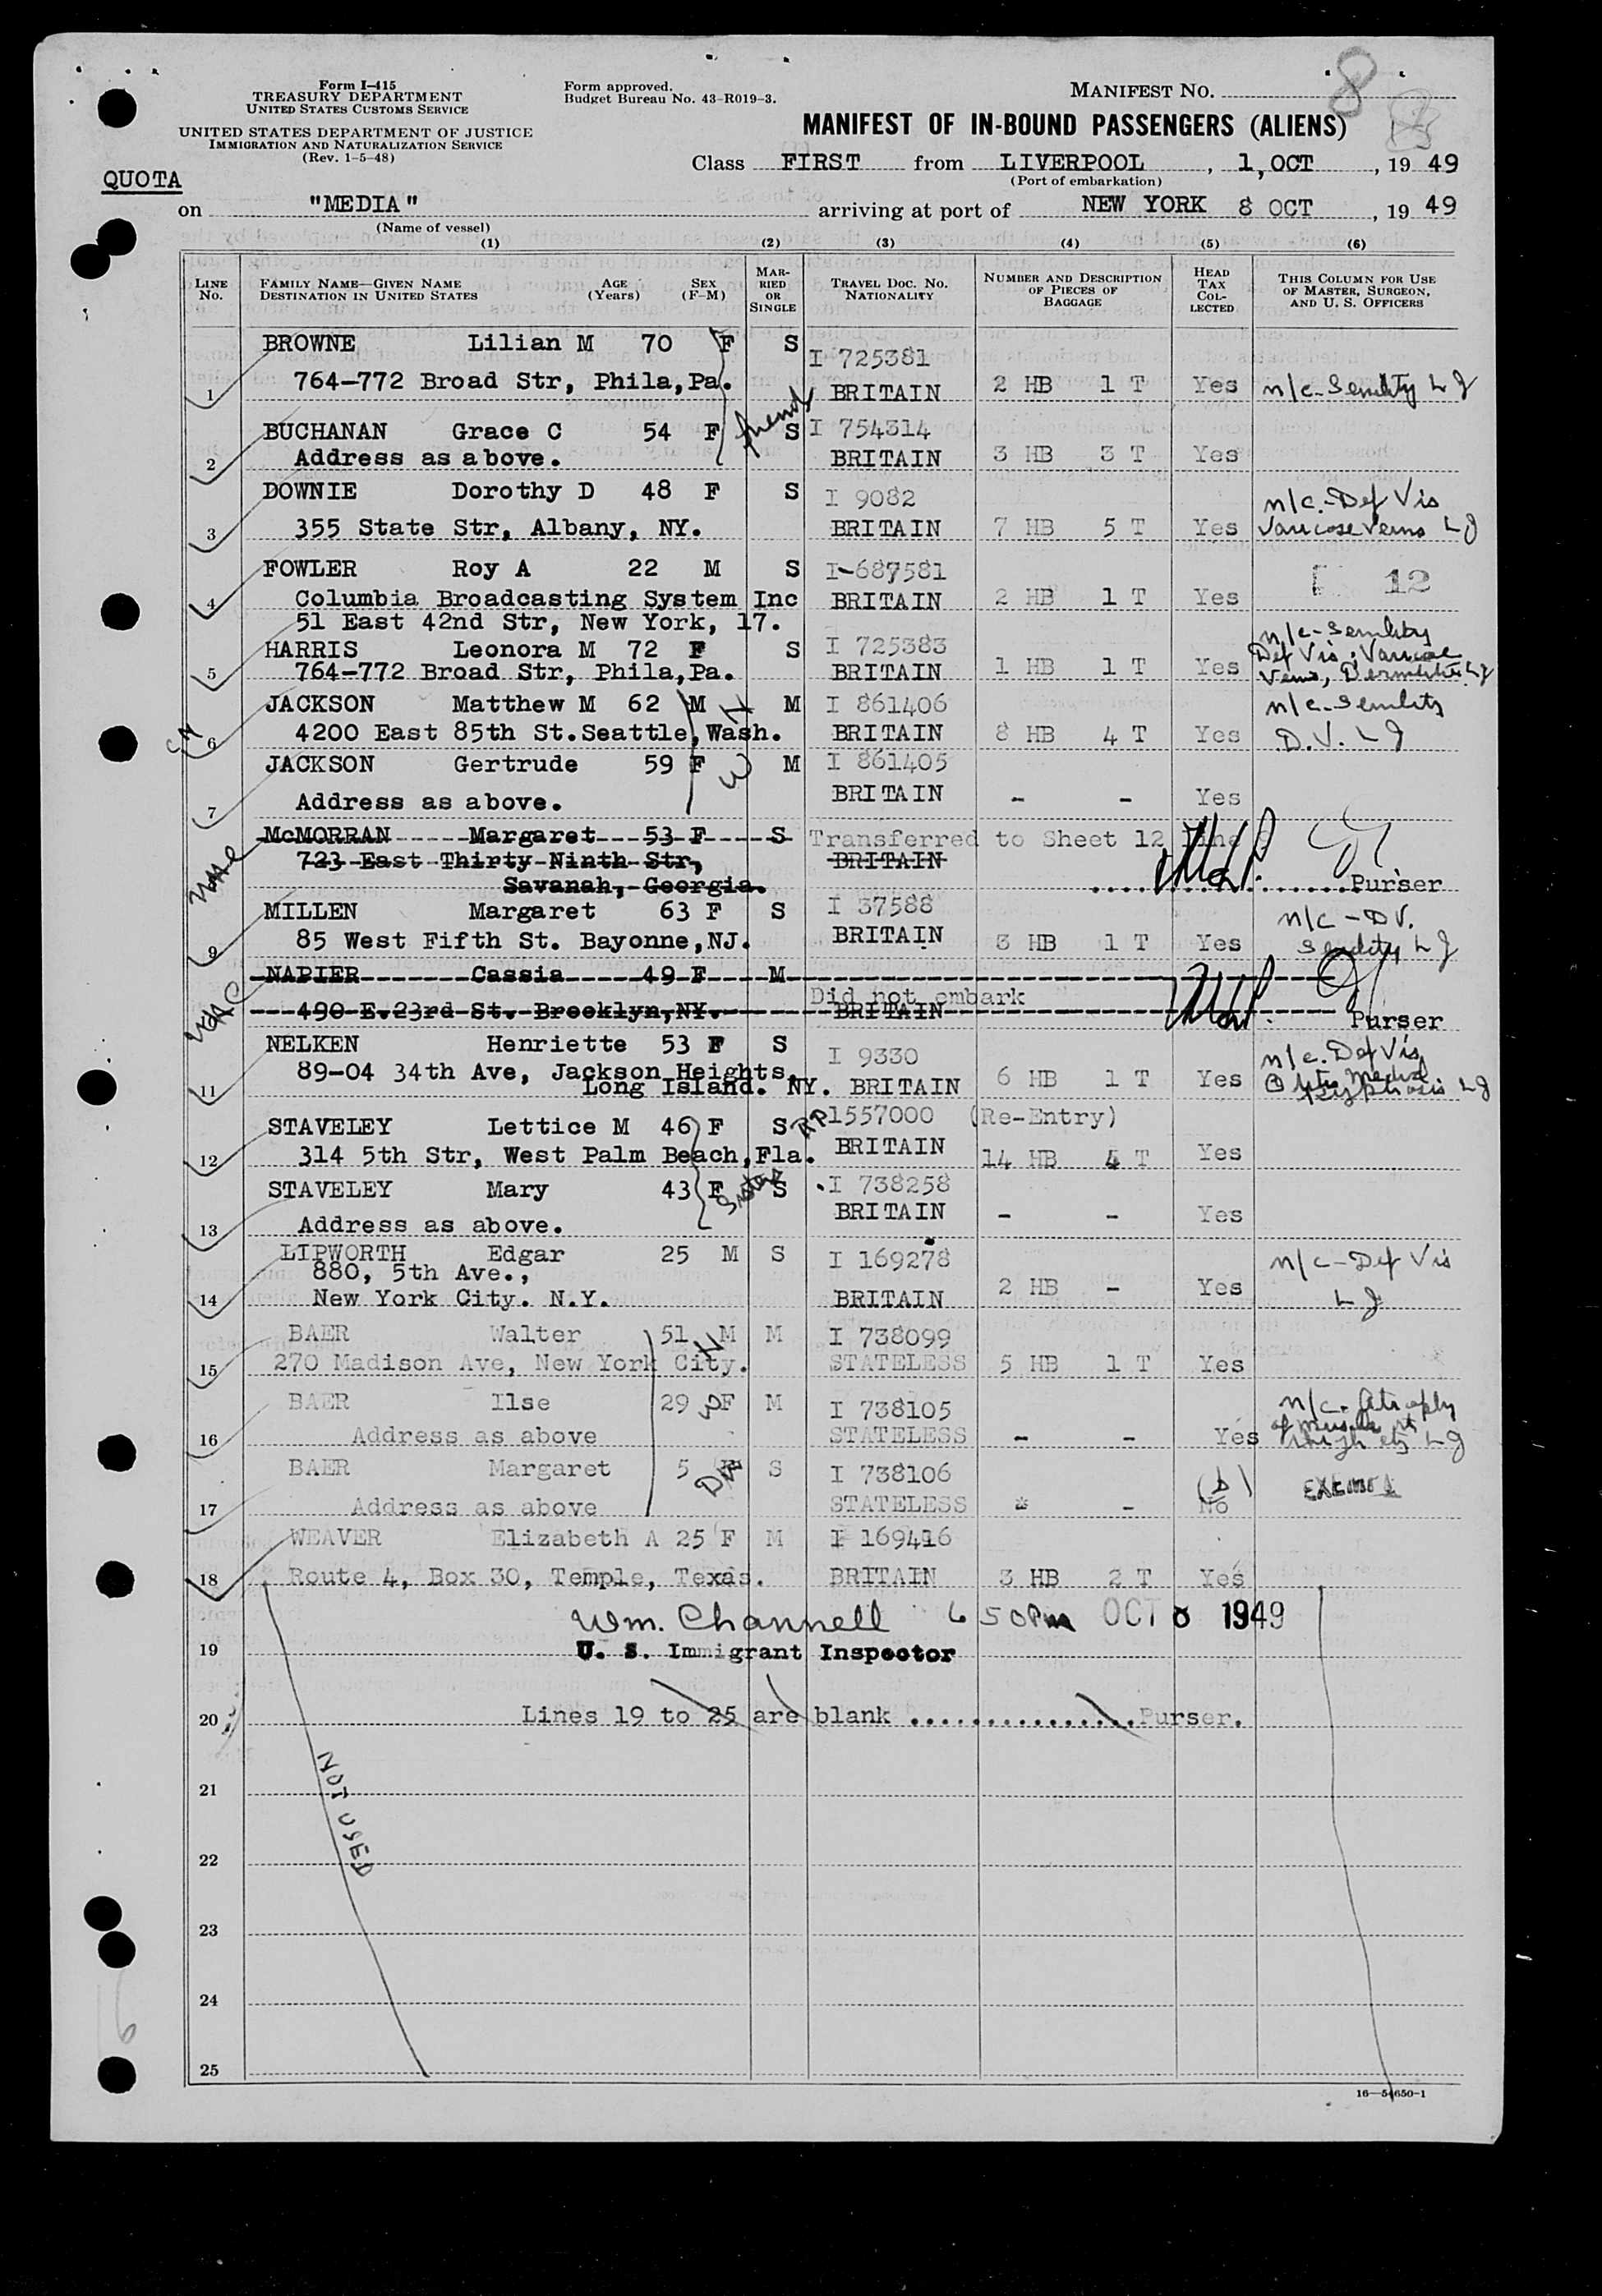 Form I-415
TREASURY DEPARTMENT
UNITED STATES CUSTOMS SERVICE
UNITED STATES DEPARTMENT OF JUSTICE
IMMIGRATION AND NATURALIZATION SERVICE
(Rev. 1-5-48)
Form approved.
Budget Bureau No. 43-R019-3.
MANIFEST No. 8
MANIFEST OF IN-BOUND PASSENGERS (ALIENS)
Class FIRST from LIVERPOOL, 1, OCT, 19 49
(Port of embarkation)
QUOTA
on "MEDIA" arriving at port of NEW YORK 8 OCT, 19 49
(Name of vessel)
(1) (2) (3) (4) (5) (6)
LINE No.
FAMILY NAME—GIVEN NAME
DESTINATION IN UNITED STATES
AGE (Years)
SEX (F-M)
MARRIED OR SINGLE
TRAVEL DOC. NO.
NATIONALITY
NUMBER AND DESCRIPTION OF PIECES OF BAGGAGE
HEAD TAX COLLECTED
THIS COLUMN FOR USE OF MASTER, SURGEON, AND U. S. OFFICERS
BROWNE Lilian M 70 F S I 725381
1 764-772 Broad Str, Phila, Pa. BRITAIN 2 HB 1 T Yes n/c-Senility L J
friends
BUCHANAN Grace C 54 F S I 754314
2 Address as above. BRITAIN 3 HB 3 T Yes
DOWNIE Dorothy D 48 F S I 9082 n/c.-Def Vis
3 355 State Str, Albany, NY. BRITAIN 7 HB 5 T Yes Varicose Veins L J
FOWLER Roy A 22 M S I-687581 12
4 Columbia Broadcasting System Inc BRITAIN 2 HB 1 T Yes
51 East 42nd Str, New York, 17.
HARRIS Leonora M 72 F S I 725383 n/c-Senility
5 764-772 Broad Str, Phila, Pa. BRITAIN 1 HB 1 T Yes Def Vis, Varicose Veins, Dermatitis L J
JACKSON Matthew M 62 M M I 861406 n/c-Senility
6 4200 East 85th St. Seattle, Wash. BRITAIN 8 HB 4 T Yes D.V. L J
JACKSON Gertrude 59 F M I 861405
7 Address as above. BRITAIN - - Yes
McMORRAN Margaret 53 F S Transferred to Sheet 12 line
723 East Thirty Ninth Str, BRITAIN
Savanah, Georgia. Purser
MILLEN Margaret 63 F S I 37588 n/c - D V.
9 85 West Fifth St. Bayonne, NJ. BRITAIN 3 HB 1 T Yes Senility L J
NAPIER Cassia 49 F M
Did not embark
490 E. 23rd St. Brooklyn, NY. BRITAIN Purser
NELKEN Henriette 53 F S I 9330 n/c. Def Vis
89-04 34th Ave, Jackson Heights,
11 Long Island. NY. BRITAIN 6 HB 1 T Yes L J
STAVELEY Lettice M 46 F S RP 1557000 (Re-Entry)
12 314 5th Str, West Palm Beach, Fla. BRITAIN 14 HB 4 T Yes
Sister
STAVELEY Mary 43 F S I 738258
13 Address as above. BRITAIN - - Yes
LIPWORTH Edgar 25 M S I 169278 n/c-Def Vis
880, 5th Ave.,
14 New York City. N.Y. BRITAIN 2 HB - Yes L J
BAER Walter 51 M M I 738099
15 270 Madison Ave, New York City. STATELESS 5 HB 1 T Yes
BAER Ilse 29 F M I 738105 n/c. Atrophy
16 Address as above STATELESS - - Yes of muscle rt thigh etc L J
BAER Margaret 5 F S I 738106
17 Address as above STATELESS - No (b) EXEMPT
WEAVER Elizabeth A 25 F M I 169416
18 Route 4, Box 30, Temple, Texas. BRITAIN 3 HB 2 T Yes
Wm. Channell 6 50 PM OCT 8 1949
19 U. S. Immigrant Inspector
20 Lines 19 to 25 are blank ................Purser.
NOT USED
21
22
23
24
25
16—54650-1